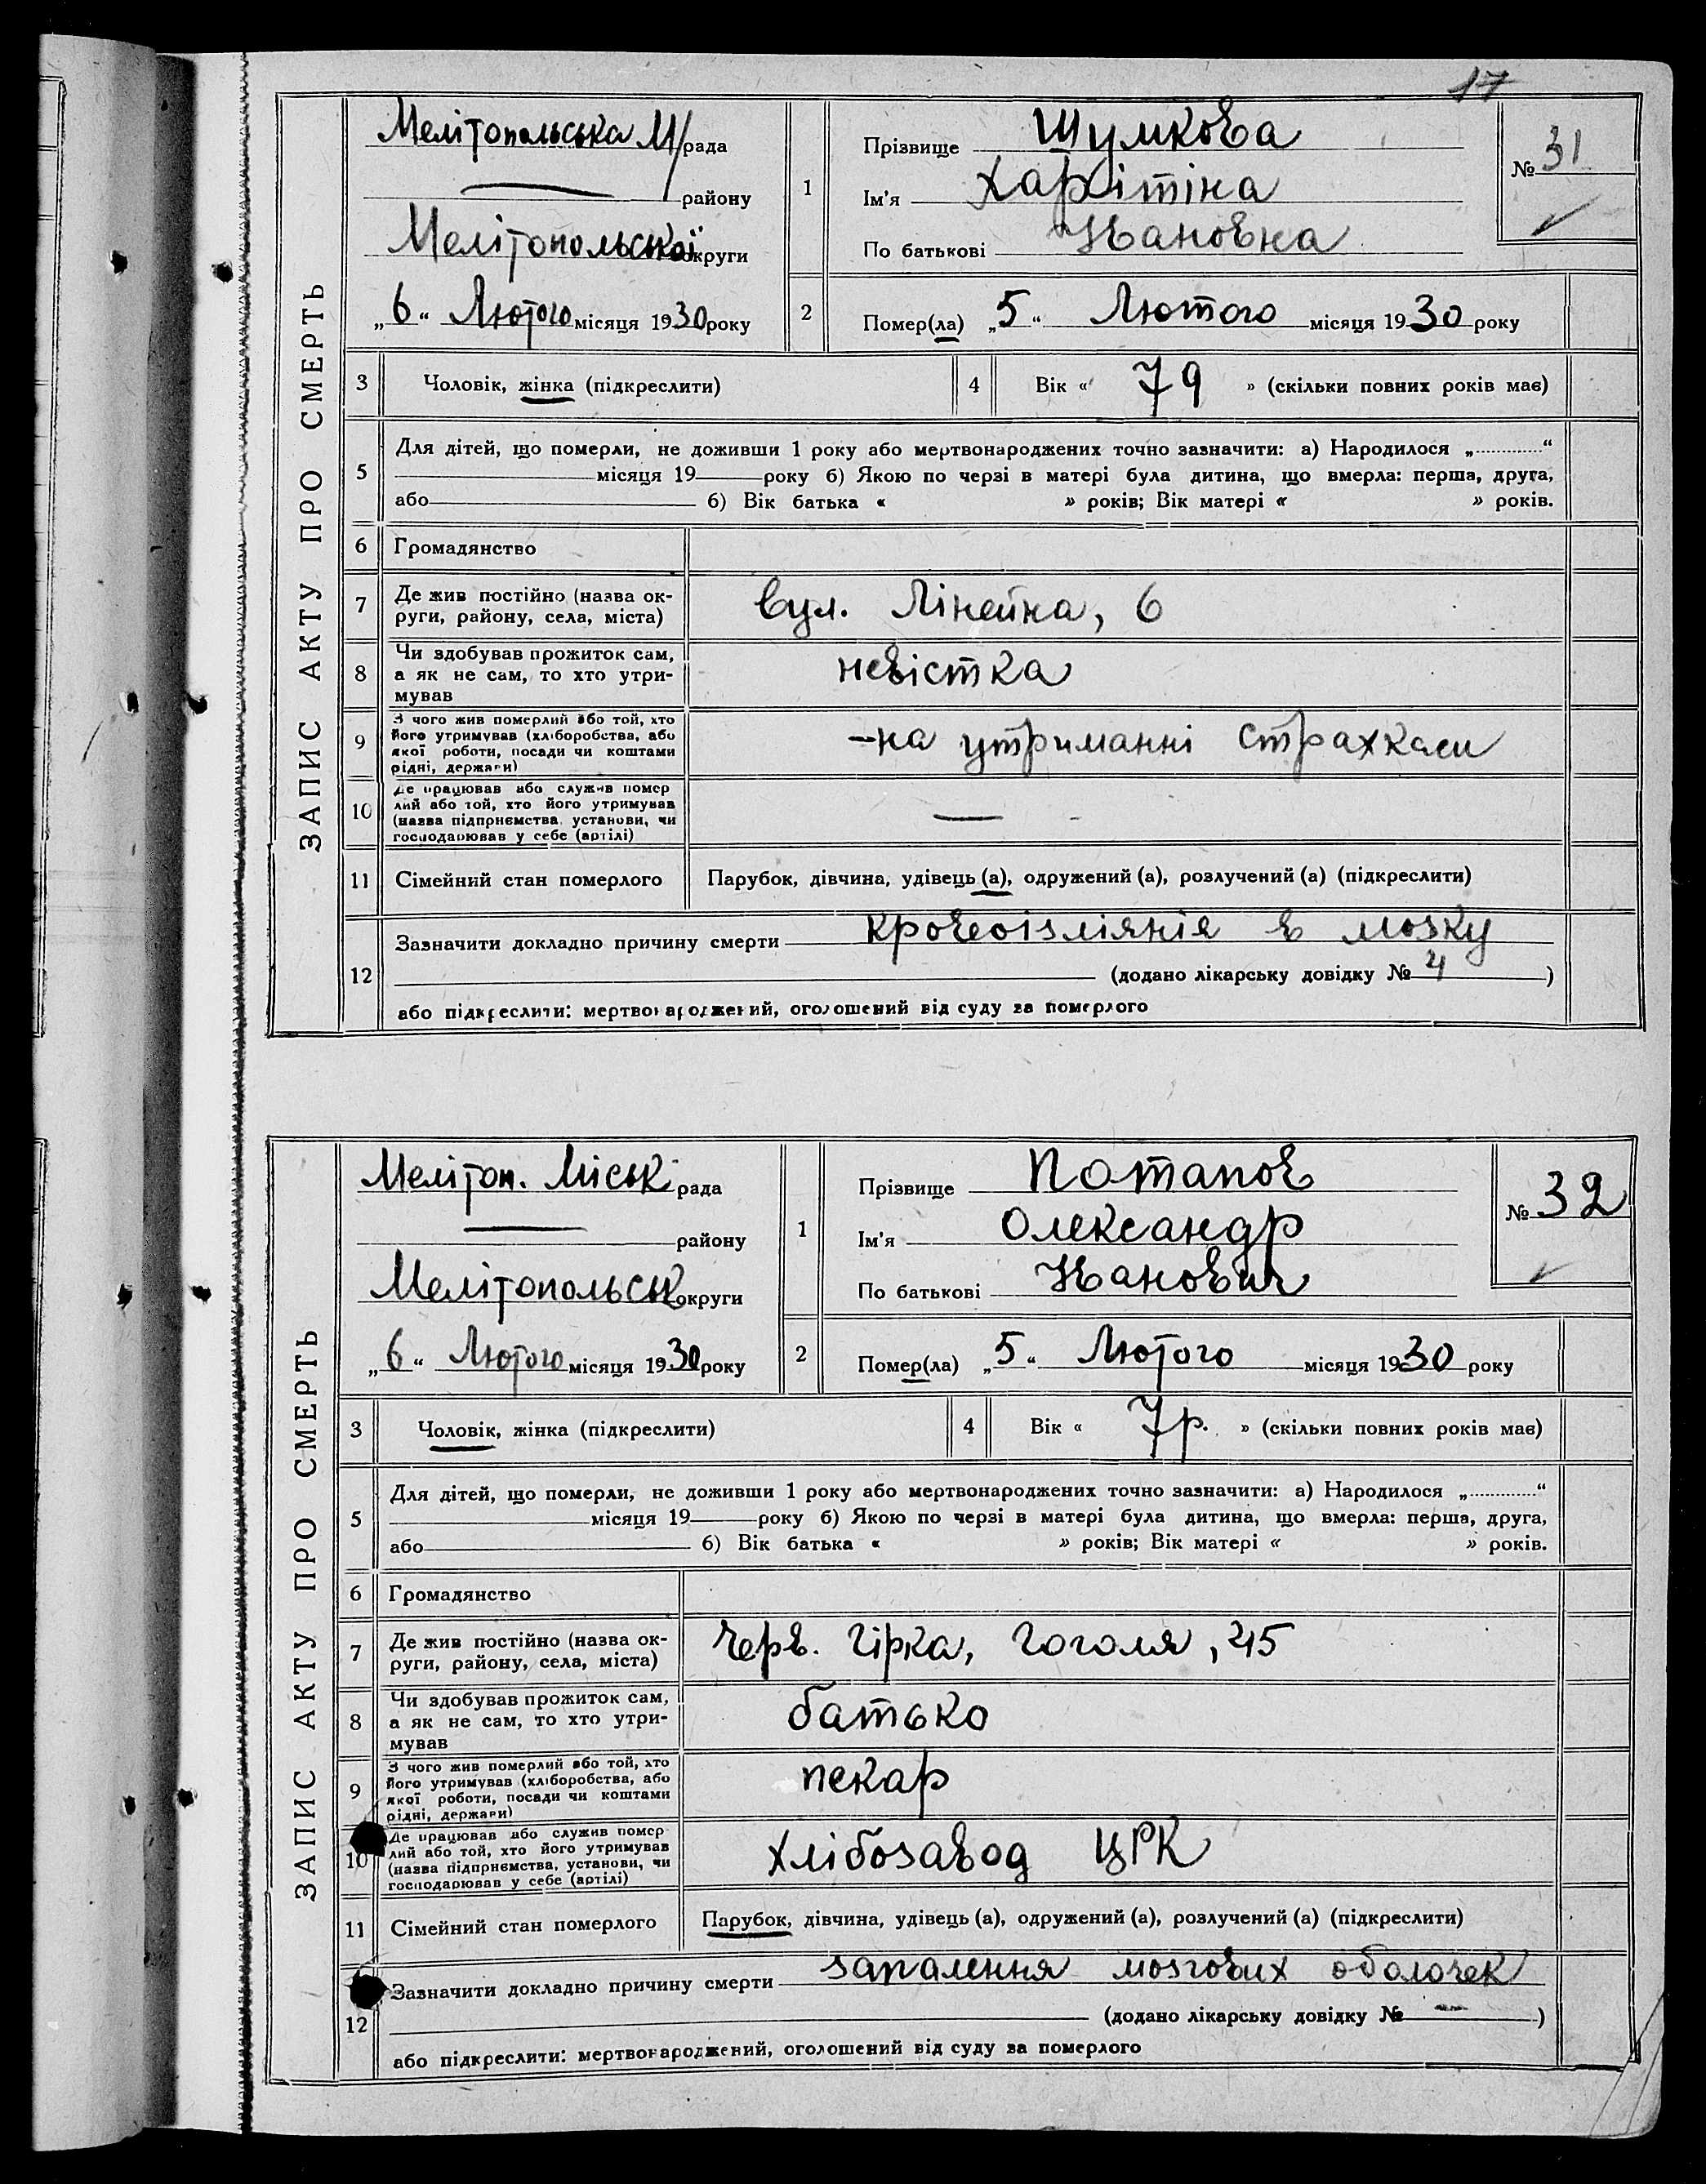 17
ЗАПИС АКТУ ПРО СМЕРТЬ
Мелітопольська М/рада
району
Мелітопольської округи
„6“ Лютого місяця 1930 року
1
Прізвище Шумкова
Ім'я Харітіна
По батькові Ивановна
№ 31
2
Помер(ла) „5“ Лютого місяця 1930 року
3 Чоловік, жінка (підкреслити)
4 Вік « 79 » (скільки повних років має)
5 Для дітей, що померли, не доживши 1 року або мертвонароджених точно зазначити: а) Народилося „............“
місяця 19 року б) Якою по черзі в матері була дитина, що вмерла: перша, друга,
або б) Вік батька « » років; Вік матері « » років.
6 Громадянство
7 Де жив постійно (назва ок-
руги, району, села, міста)
вул. Лінейна, 6
8 Чи здобував прожиток сам,
а як не сам, то хто утри-
мував
невістка
9 З чого жив померлий або той, хто
його утримував (хліборобства, або
якої роботи, посади чи коштами
рідні, держави)
-на утриманні страхкаси
10 Де працював або служив помер
лий або той, хто його утримував
(назва підприємства, установи, чи
господарював у себе (артілі)
—
11 Сімейний стан померлого
Парубок, дівчина, удівець (а), одружений (а), розлучений (а) (підкреслити)
12 Зазначити докладно причину смерти кровоізліянія в мозку
(додано лікарську довідку № 4 )
або підкреслити: мертвонароджений, оголошений від суду за померлого
ЗАПИС АКТУ ПРО СМЕРТЬ
Мелітоп. Міськ рада
району
Мелітопольськ округи
„6“ Лютого місяця 1930 року
1
Прізвище Потапов
Ім'я Олександр
По батькові Иванович
№ 32
2
Помер(ла) „5“ Лютого місяця 1930 року
3 Чоловік, жінка (підкреслити)
4 Вік « 7 р. » (скільки повних років має)
5 Для дітей, що померли, не доживши 1 року або мертвонароджених точно зазначити: а) Народилося „............“
місяця 19 року б) Якою по черзі в матері була дитина, що вмерла: перша, друга,
або б) Вік батька « » років; Вік матері « » років.
6 Громадянство
7 Де жив постійно (назва ок-
руги, району, села, міста)
Черв. Гірка, Гоголя, 45
8 Чи здобував прожиток сам,
а як не сам, то хто утри-
мував
батько
9 З чого жив померлий або той, хто
його утримував (хліборобства, або
якої роботи, посади чи коштами
рідні, держави)
пекар
10 Де працював або служив помер
лий або той, хто його утримував
(назва підприємства, установи, чи
господарював у себе (артілі)
хлібозавод ЦРК
11 Сімейний стан померлого
Парубок, дівчина, удівець (а), одружений (а), розлучений (а) (підкреслити)
12 Зазначити докладно причину смерти запалення мозгових оболочек
(додано лікарську довідку № — )
або підкреслити: мертвонароджений, оголошений від суду за померлого